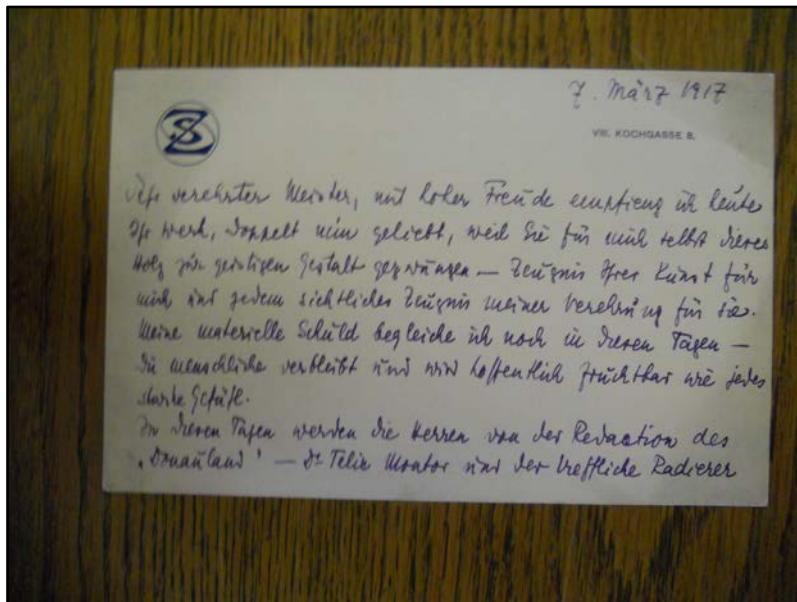 SZ
7. März 1917
VIII. KOCHGASSE 8.
Sehr verehrter Meister, mit hoher Freude empfieng ich heute
Ihr Werk, doppelt nun geliebt, weil Sie für mich selbst dieses
Holz zur geistigen Gestalt gezwungen — Zeugnis Ihrer Kunst für
mich und jedem sichtliches Zeugnis meiner Verehrung für Sie.
Meine materielle Schuld begleiche ich noch in diesen Tagen —
die menschliche verbleibt und wird hoffentlich fruchtbar wie jedes
starke Gefühl.
In diesen Tagen werden die Herren von der Redaction des
„Donauland" — Dr. Felix und der treffliche Radierer